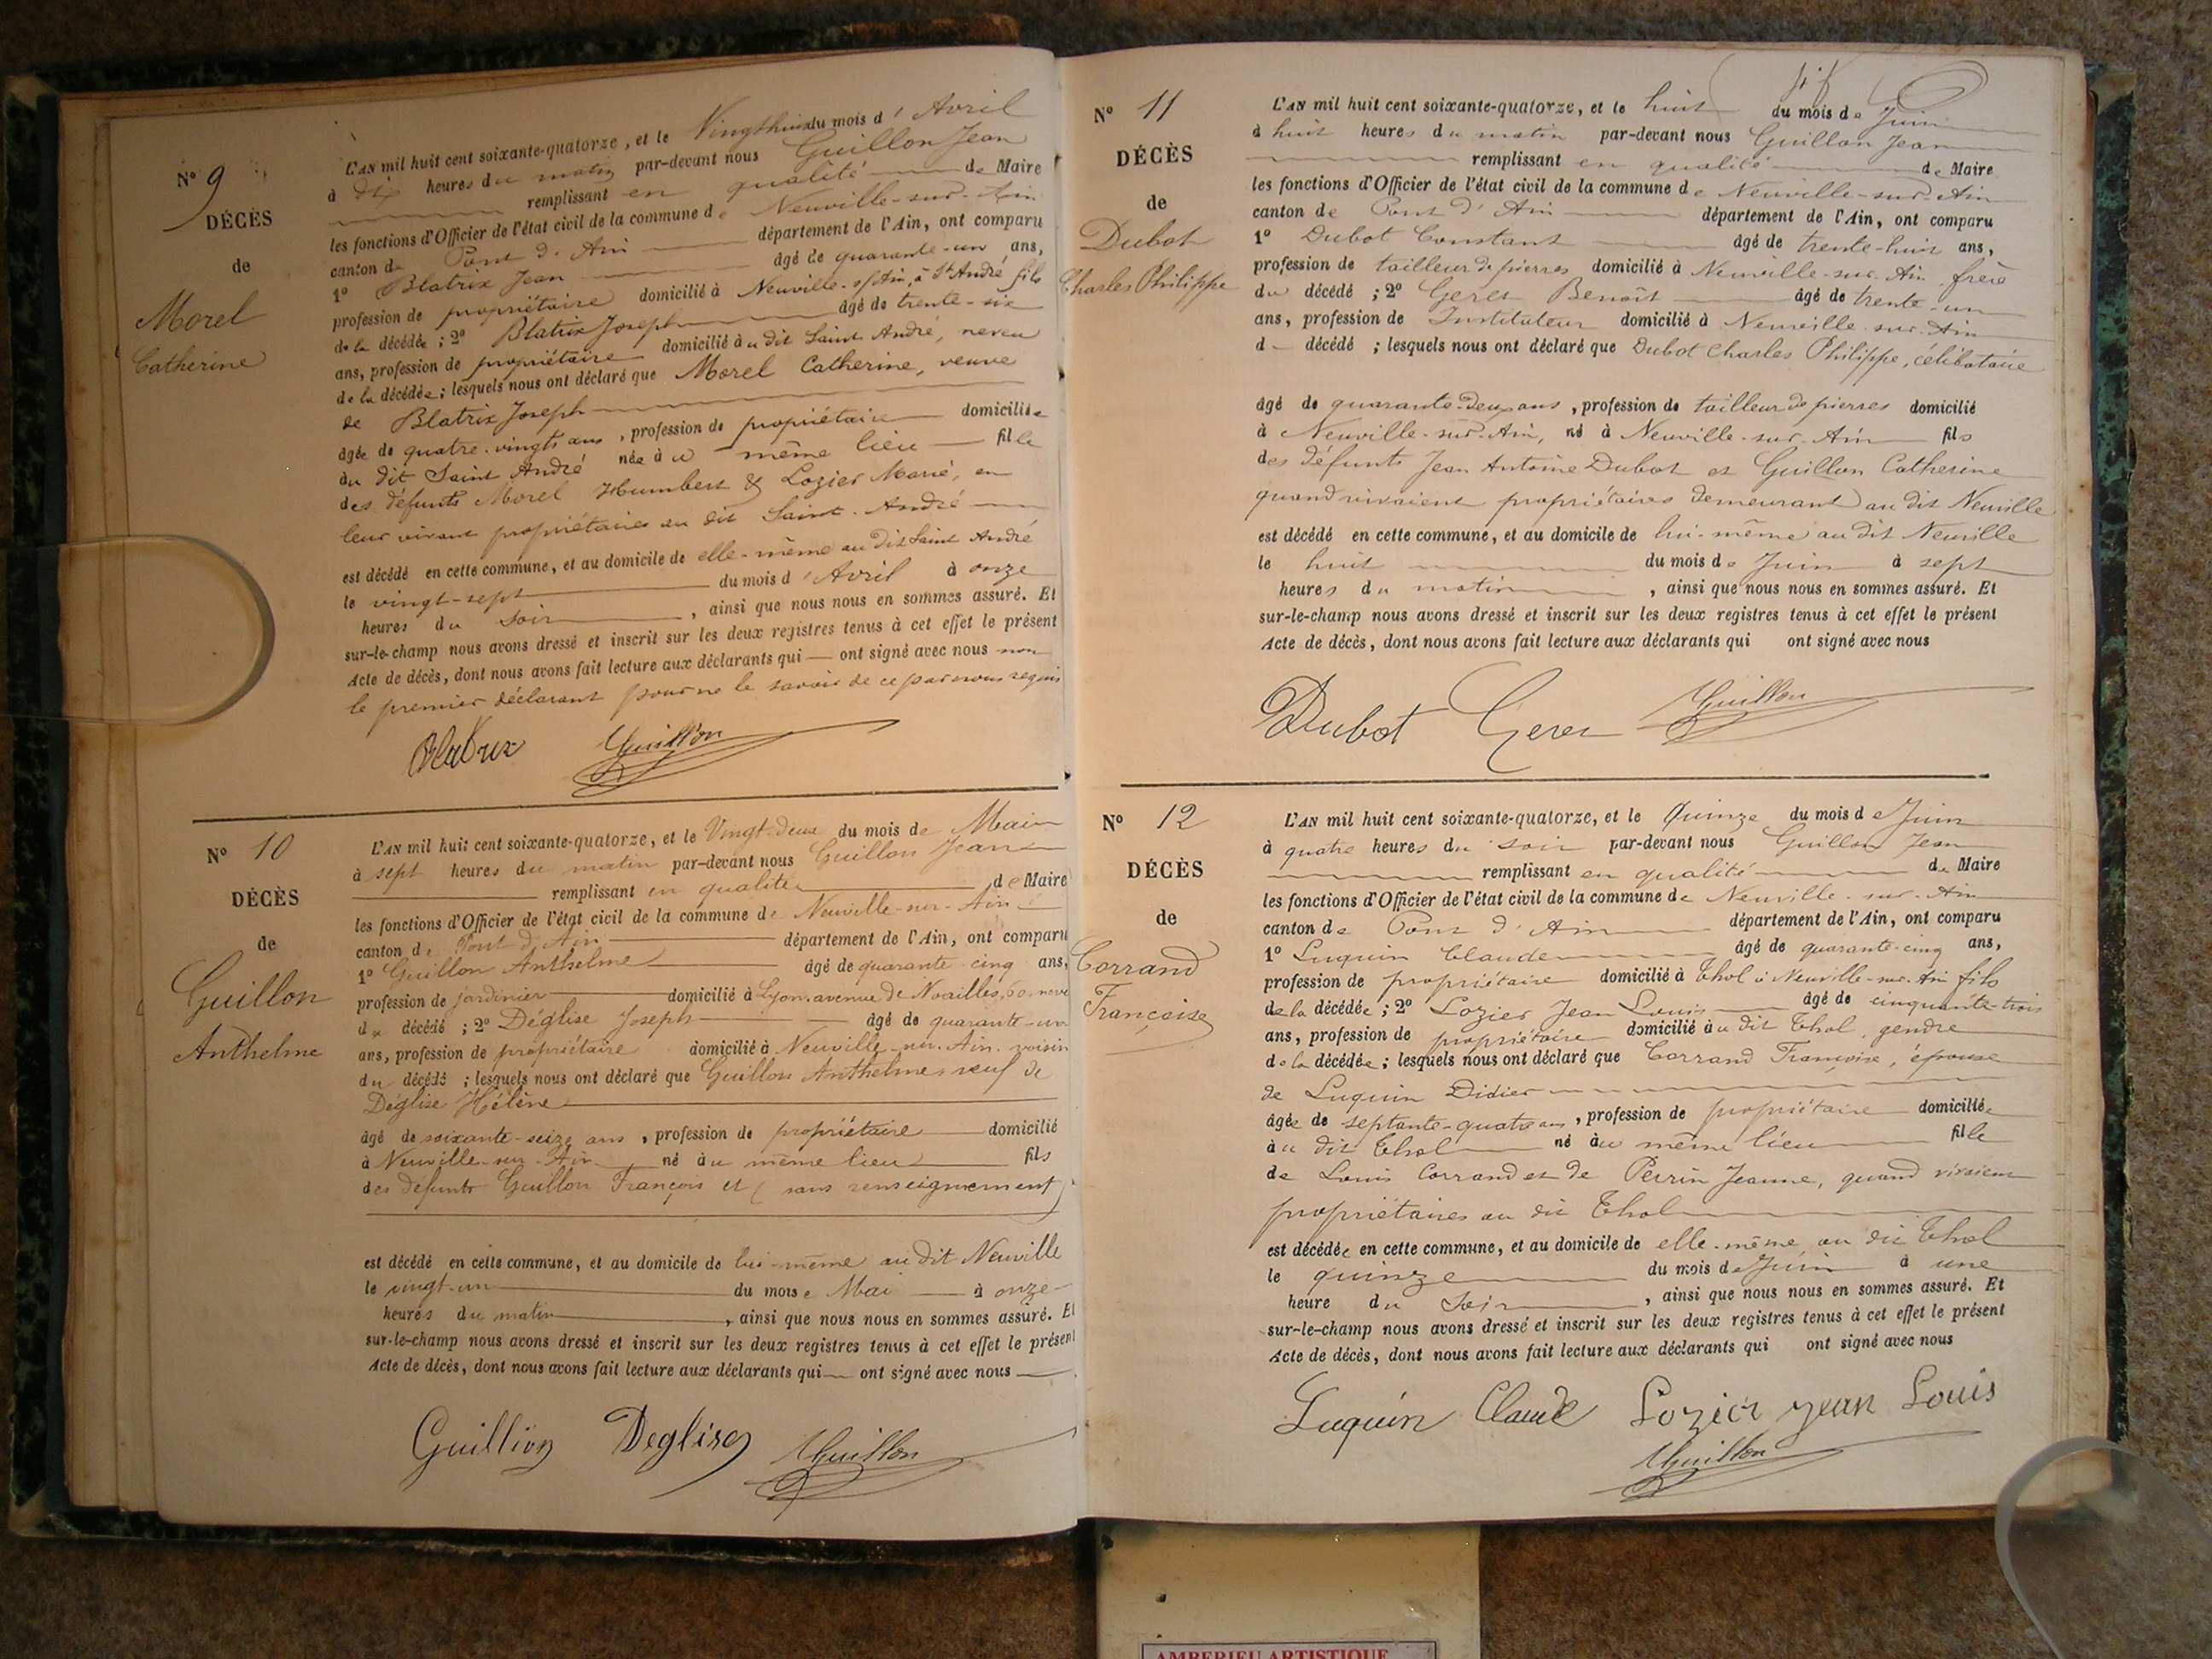 Nº 9
DÉCÈS
de
Morel
Catherine
L'AN mil huit cent soixante-quatorze, et le Vingthuit du mois d'Avril
à dix heures du matin par-devant nous Guillon Jean
remplissant en qualité de Maire
les fonctions d'Officier de l'état civil de la commune de Neuville-sur-Ain
canton de Pont d'Ain département de l'Ain, ont comparu
1º Blatrix Jean âgé de quarante-un ans,
profession de propriétaire domicilié à Neuville-s/Ain, à St André fils
de la décédée ; 2º Blatrix Joseph âgé de trente-six
ans, profession de propriétaire domicilié au dit Saint André, neveu
de la décédée ; lesquels nous ont déclaré que Morel Catherine, veuve
de Blatrix Joseph
âgée de quatre-vingts ans, profession de propriétaire domiciliée
au dit Saint André née au même lieu fille
des défunts Morel Humbert & Lozier Marie, en
leur vivant propriétaires au dit Saint-André
est décédé en cette commune, et au domicile de elle-même au dit Saint André
le vingt-sept du mois d'Avril à onze
heures du soir, ainsi que nous nous en sommes assuré. Et
sur-le-champ nous avons dressé et inscrit sur les deux registres tenus à cet effet le présent
Acte de décès, dont nous avons fait lecture aux déclarants qui ont signé avec nous non
le premier déclarant pour ne le savoir de ce par nous requis
Blatrix Guillon
Nº 10
DÉCÈS
de
Guillon
Anthelme
L'AN mil huit cent soixante-quatorze, et le Vingt-deux du mois de Mai
à sept heures du matin par-devant nous Guillon Jean
remplissant en qualité de Maire
les fonctions d'Officier de l'état civil de la commune de Neuville-sur-Ain
canton de Pont d'Ain département de l'Ain, ont comparu
1º Guillon Anthelme âgé de quarante-cinq ans,
profession de jardinier domicilié à Lyon, avenue de Noailles, 60, neveu
du décédé ; 2º Déglise Joseph âgé de quarante-un
ans, profession de propriétaire domicilié à Neuville-sur-Ain, voisin
du décédé ; lesquels nous ont déclaré que Guillon Anthelme veuf de
Déglise Hélène
âgé de soixante-seize ans, profession de propriétaire domicilié
à Neuville-sur-Ain né au même lieu fils
des défunts Guillon François et (sans renseignement)
est décédé en cette commune, et au domicile de lui-même au dit Neuville
le vingt-un du mois e Mai à onze
heures du matin, ainsi que nous nous en sommes assuré. Et
sur-le-champ nous avons dressé et inscrit sur les deux registres tenus à cet effet le présent
Acte de décès, dont nous avons fait lecture aux déclarants qui ont signé avec nous
Guillion Deglise Guillon
Nº 11
DÉCÈS
de
Dubot
Charles Philippe
L'AN mil huit cent soixante-quatorze, et le huit du mois de Juin
à huit heures du matin par-devant nous Guillon Jean
remplissant en qualité de Maire
les fonctions d'Officier de l'état civil de la commune de Neuville-sur-Ain
canton de Pont d'Ain département de l'Ain, ont comparu
1º Dubot Constant âgé de trente-huit ans,
profession de tailleur de pierres domicilié à Neuville-sur-Ain, frère
du décédé ; 2º Geret Benoît âgé de trente-un
ans, profession de Instituteur domicilié à Neuville-sur-Ain
d décédé ; lesquels nous ont déclaré que Dubot Charles Philippe, célibataire
âgé de quarante-deux ans, profession de tailleur de pierres domicilié
à Neuville-sur-Ain, né à Neuville-sur-Ain fils
des défunts Jean Antoine Dubot et Guillon Catherine
quand vivaient propriétaires demeurant au dit Neuville
est décédé en cette commune, et au domicile de lui-même au dit Neuville
le huit du mois de Juin à sept
heures du matin, ainsi que nous nous en sommes assuré. Et
sur-le-champ nous avons dressé et inscrit sur les deux registres tenus à cet effet le présent
Acte de décès, dont nous avons fait lecture aux déclarants qui ont signé avec nous
Dubot Geret Guillon
Nº 12
DÉCÈS
de
Corrand
Françoise
L'AN mil huit cent soixante-quatorze, et le Quinze du mois de Juin
à quatre heures du soir par-devant nous Guillon Jean
remplissant en qualité de Maire
les fonctions d'Officier de l'état civil de la commune de Neuville-sur-Ain
canton de Pont d'Ain département de l'Ain, ont comparu
1º Luquin Claude âgé de quarante-cinq ans,
profession de propriétaire domicilié à Thol à Neuville-sur-Ain fils
de la décédée ; 2º Lozier Jean Louis âgé de cinquante-trois
ans, profession de propriétaire domicilié au dit Thol, gendre
de la décédée ; lesquels nous ont déclaré que Corrand Françoise, épouse
de Luquin Didier
âgée de septante-quatre ans, profession de propriétaire domiciliée
au dit Thol né au même lieu fille
de Louis Corrand et de Perrin Jeanne, quand vivaient
propriétaires au dit Thol
est décédée en cette commune, et au domicile de elle-même au dit Thol
le quinze du mois de Juin à une
heure du soir, ainsi que nous nous en sommes assuré. Et
sur-le-champ nous avons dressé et inscrit sur les deux registres tenus à cet effet le présent
Acte de décès, dont nous avons fait lecture aux déclarants qui ont signé avec nous
Luquin Claude Lozier jean Louis
Guillon
AMBERIEU ARTISTIQUE